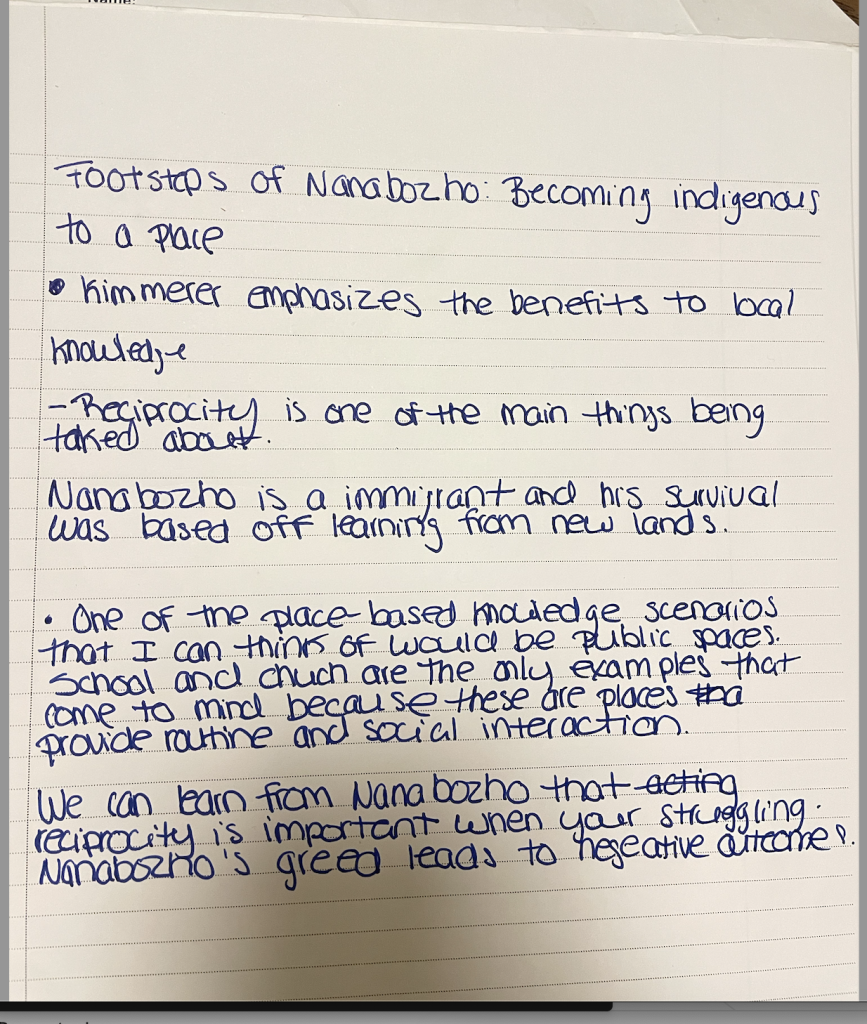 Name:
Footsteps of Nanabozho: Becoming indigenous
to a place
• Kimmerer emphasizes the benefits to local
knowledge
- Reciprocity is one of the main things being
talked about.
Nanabozho is a immigrant and his survival
was based off learning from new lands.
• One of the place-based knowledge scenarios
that I can think of would be public spaces.
School and chuch are the only examples that
come to mind because these are places tha
provide routine and social interaction.
We can learn from Nanabozho that acting
reciprocity is important when your struggling.
Nanabozho's greed leads to negeative outcomes.